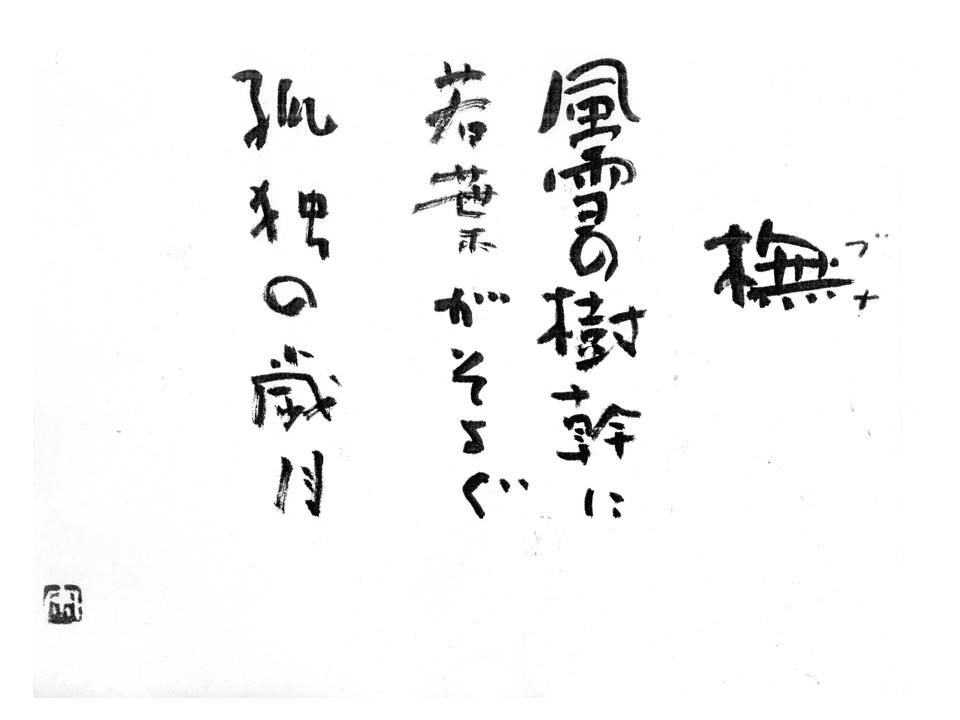 橅
ブナ
風雪の樹幹に
若葉がそよぐ
孤独の歳月